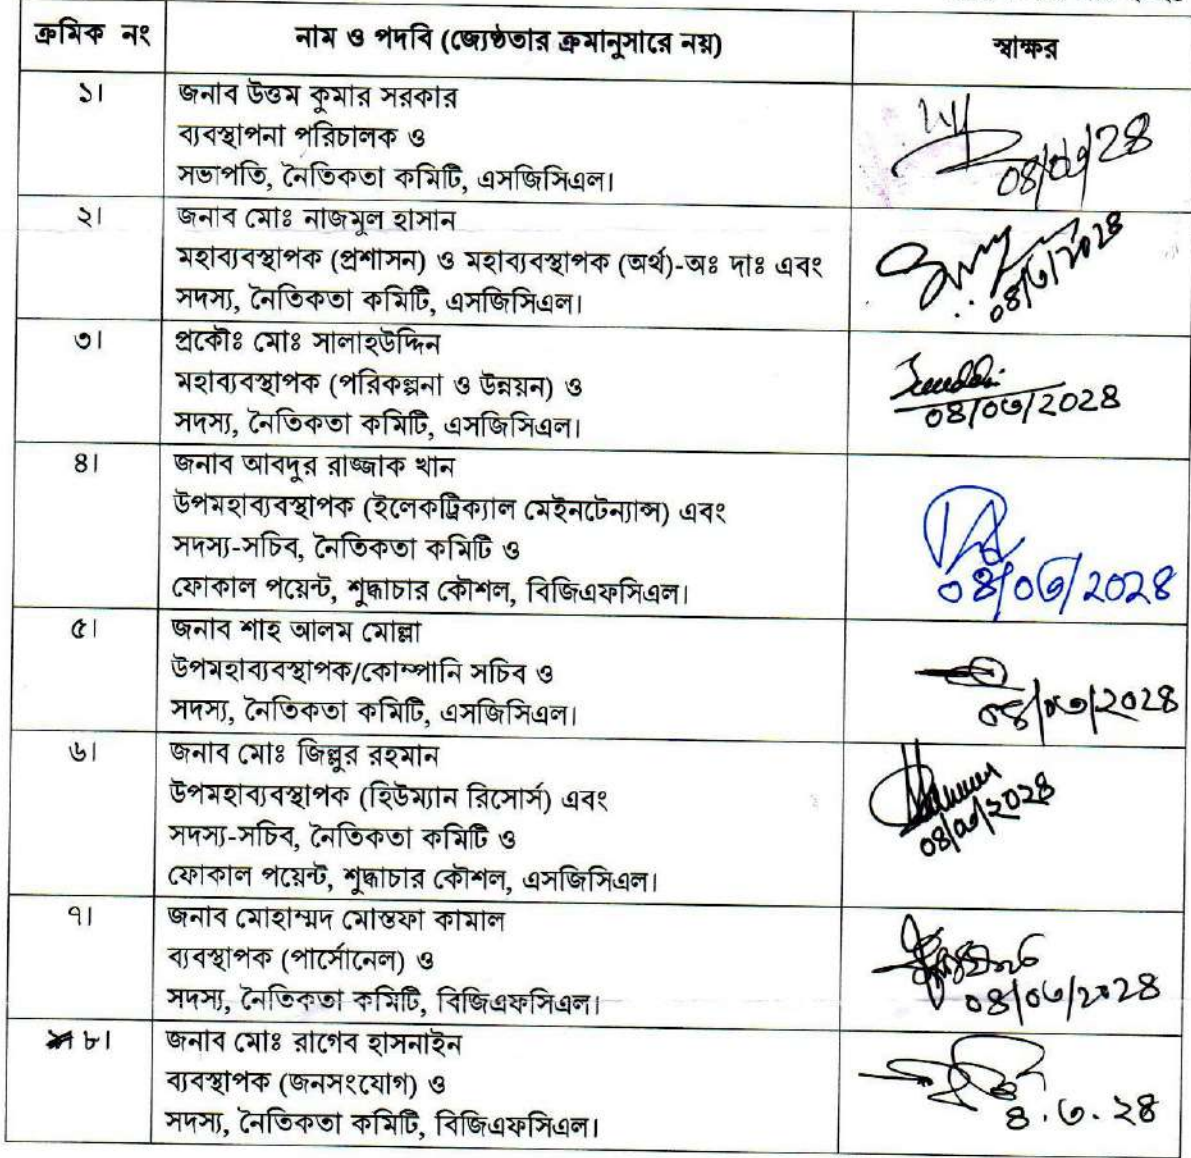 ক্রমিক নং	নাম ও পদবি (জ্যেষ্ঠতার ক্রমানুসারে নয়)	স্বাক্ষর
১।	জনাব উত্তম কুমার সরকার
ব্যবস্থাপনা পরিচালক ও
সভাপতি, নৈতিকতা কমিটি, এসজিসিএল।
০৪/০৩/২৪
২।	জনাব মোঃ নাজমুল হাসান
মহাব্যবস্থাপক (প্রশাসন) ও মহাব্যবস্থাপক (অর্থ)-অঃ দাঃ এবং
সদস্য, নৈতিকতা কমিটি, এসজিসিএল।
০৪/৩/২০২৪
৩।	প্রকৌঃ মোঃ সালাহউদ্দিন
মহাব্যবস্থাপক (পরিকল্পনা ও উন্নয়ন) ও
সদস্য, নৈতিকতা কমিটি, এসজিসিএল।
০৪/০৩/২০২৪
৪।	জনাব আবদুর রাজ্জাক খান
উপমহাব্যবস্থাপক (ইলেকট্রিক্যাল মেইনটেন্যান্স) এবং
সদস্য-সচিব, নৈতিকতা কমিটি ও
ফোকাল পয়েন্ট, শুদ্ধাচার কৌশল, বিজিএফসিএল।
০৪/০৩/২০২৪
৫।	জনাব শাহ আলম মোল্লা
উপমহাব্যবস্থাপক/কোম্পানি সচিব ও
সদস্য, নৈতিকতা কমিটি, এসজিসিএল।
০৪/০৩/২০২৪
৬।	জনাব মোঃ জিল্লুর রহমান
উপমহাব্যবস্থাপক (হিউম্যান রিসোর্স) এবং
সদস্য-সচিব, নৈতিকতা কমিটি ও
ফোকাল পয়েন্ট, শুদ্ধাচার কৌশল, এসজিসিএল।
০৪/০৩/২০২৪
৭।	জনাব মোহাম্মদ মোস্তফা কামাল
ব্যবস্থাপক (পার্সোনেল) ও
সদস্য, নৈতিকতা কমিটি, বিজিএফসিএল।
০৪/০৩/২০২৪
৮।	জনাব মোঃ রাগেব হাসনাইন
ব্যবস্থাপক (জনসংযোগ) ও
সদস্য, নৈতিকতা কমিটি, বিজিএফসিএল।
৪.৩.২৪